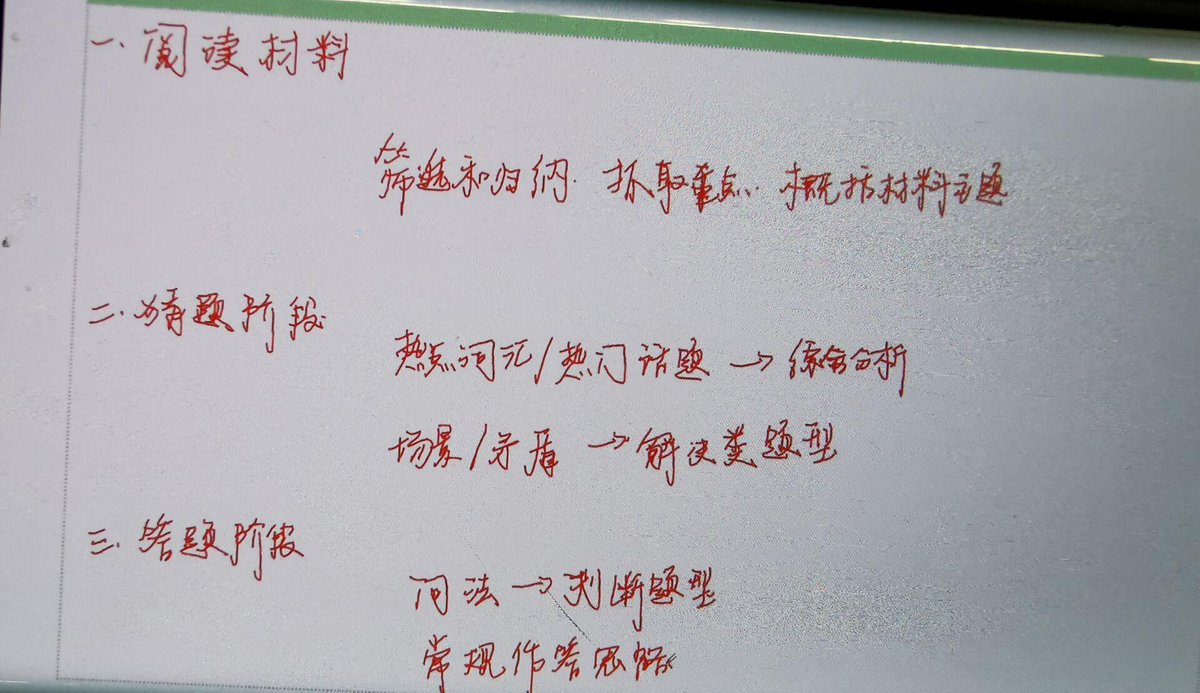 一.阅读材料
筛选和归纳.抓取重点.概括材料主题
二.猜题阶段
热点词汇/热门话题→综合分析
场景/矛盾→解决类题型
三.答题阶段
问法→判断题型
常规作答思路